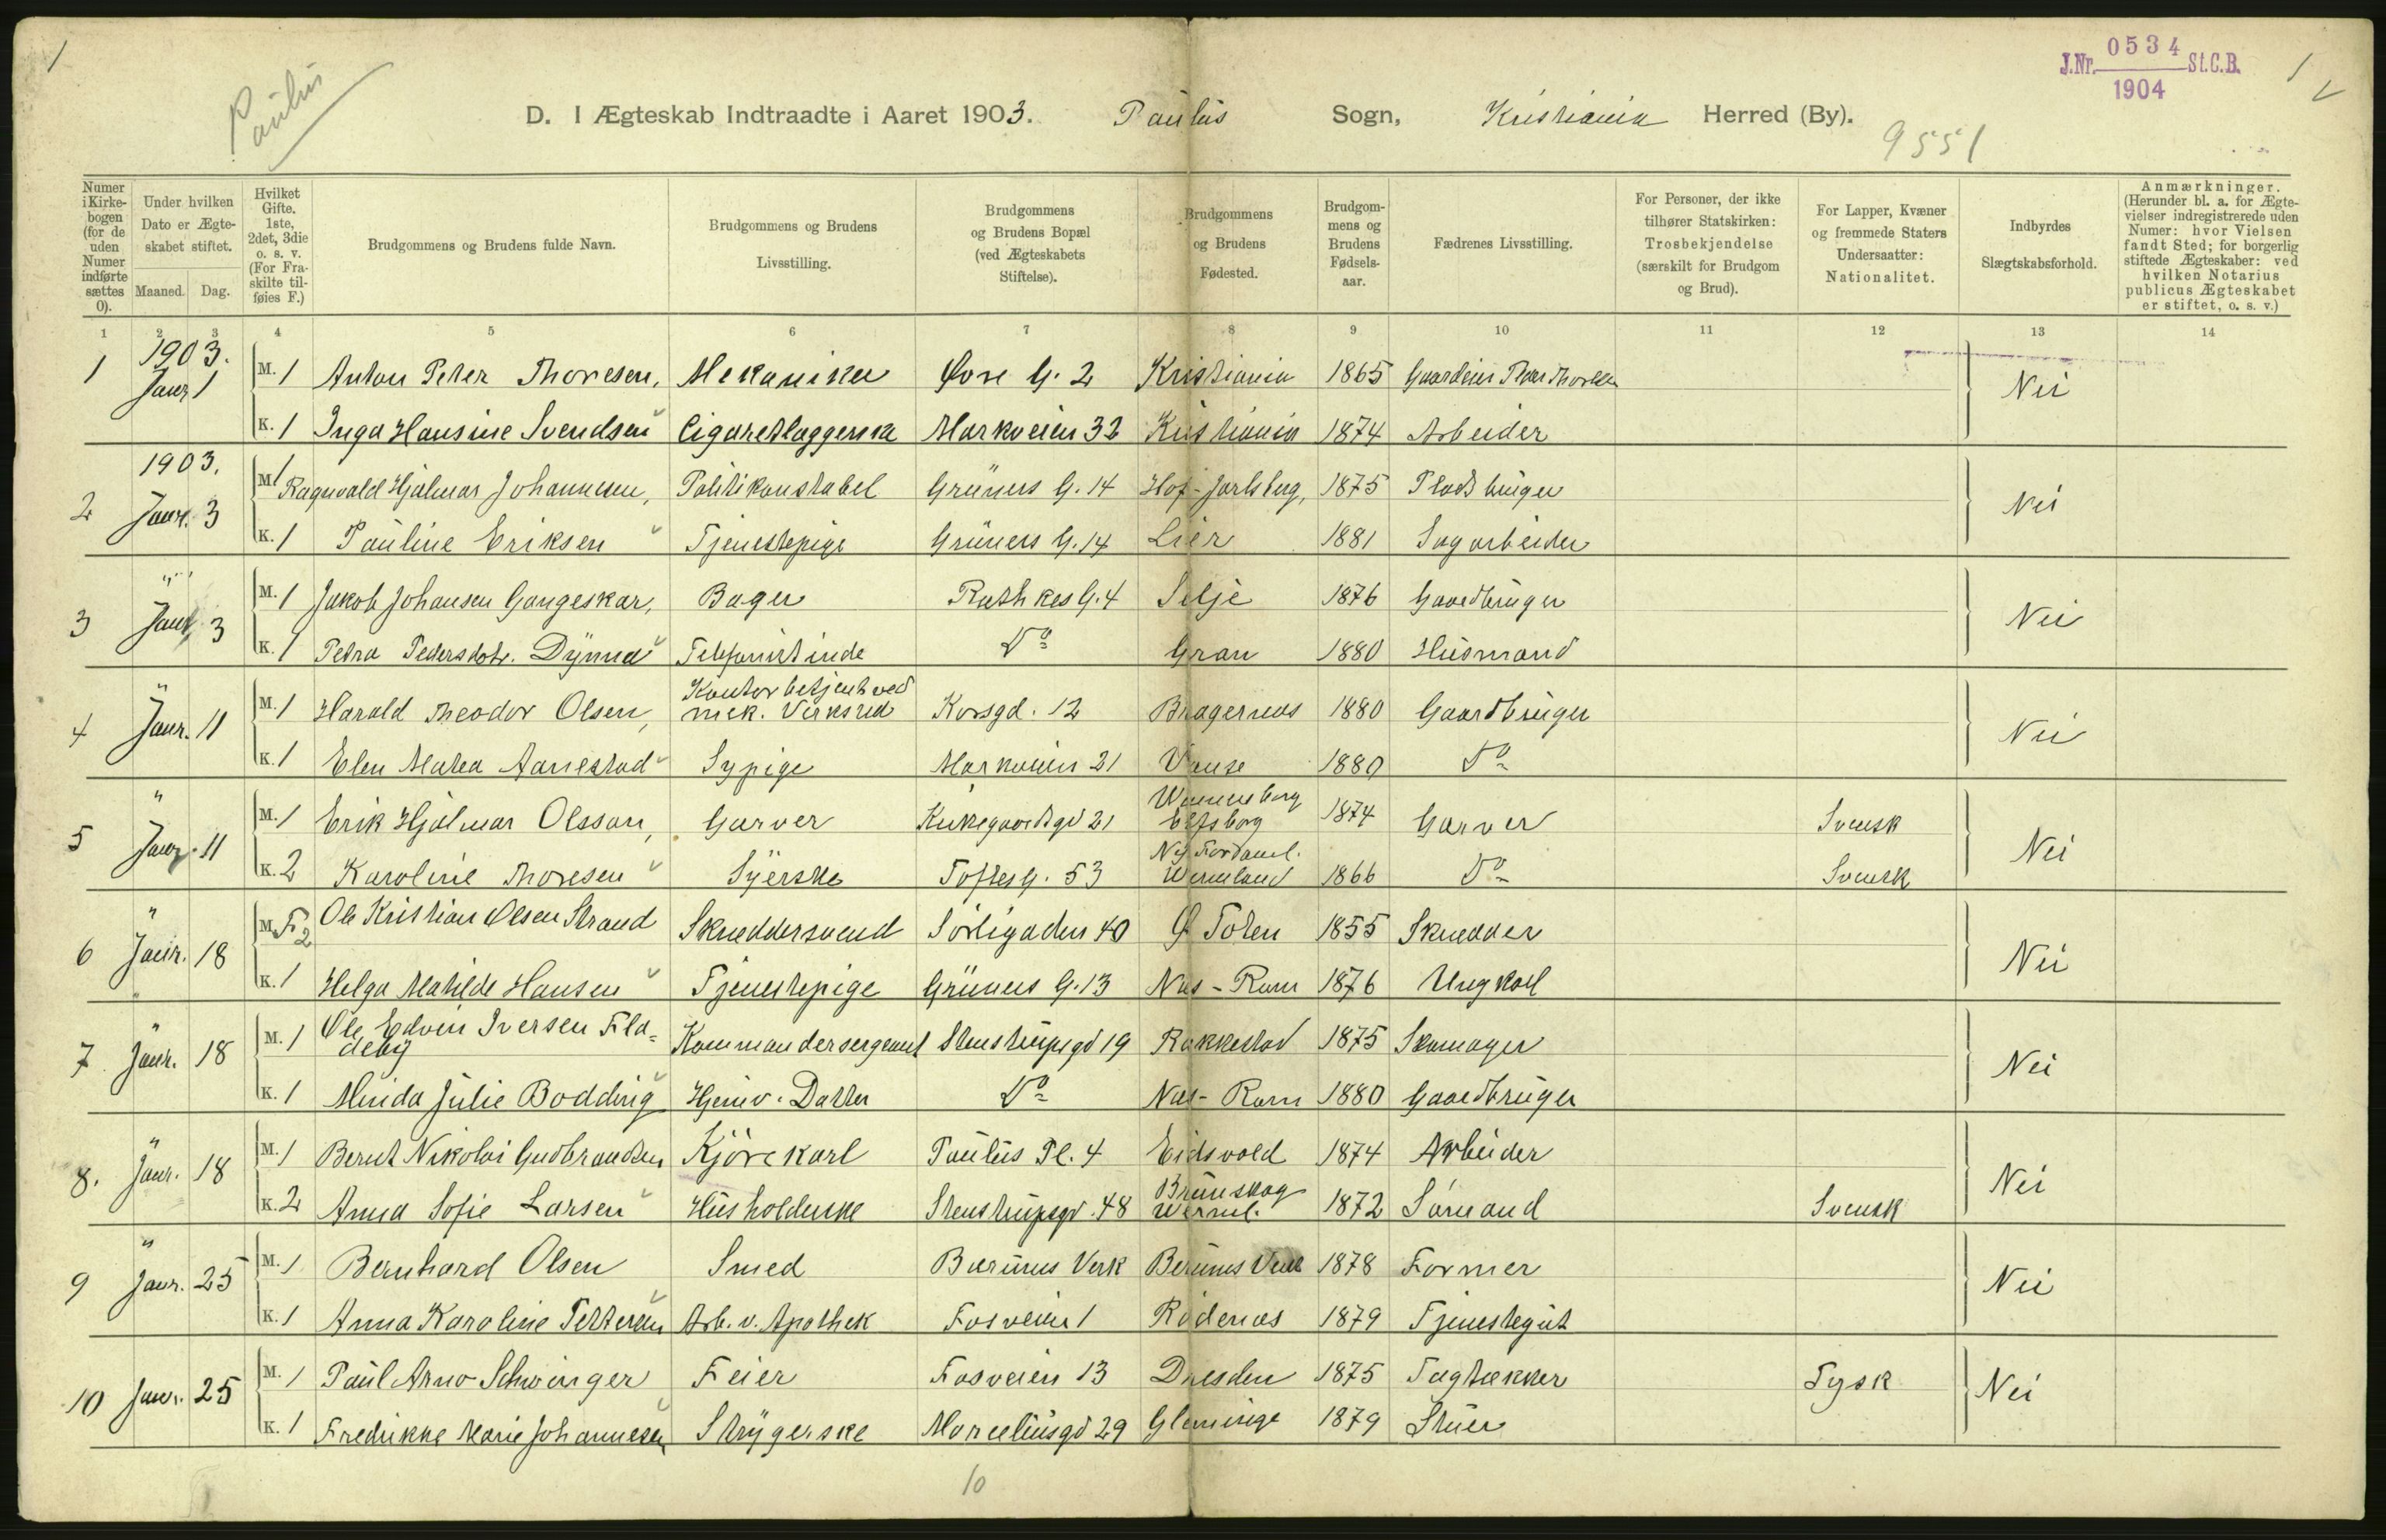 1
Paulus
J.Nr. 0534 St.C.B.
1904
1
D. I Ægteskab Indtraadte i Aaret 1903. Paulus Sogn, Kristiania Herred (By).
9551
Numer i Kirkebogen (for de uden Numer indførte sættes 0).
Under hvilken Dato er Ægteskabet stiftet.
Maaned. Dag.
Hvilket Gifte. 1ste, 2det, 3die o. s. v. (For Fraskilte tilføies F.)
Brudgommens og Brudens fulde Navn.
Brudgommens og Brudens Livsstilling.
Brudgommens og Brudens Bopæl (ved Ægteskabets Stiftelse).
Brudgommens og Brudens Fødested.
Brudgommens og Brudens Fødselsaar.
Fædrenes Livsstilling.
For Personer, der ikke tilhører Statskirken: Trosbekjendelse (særskilt for Brudgom og Brud).
For Lapper, Kvæner og fremmede Staters Undersaatter: Nationalitet.
Indbyrdes Slægtskabsforhold.
Anmærkninger. (Herunder bl. a. for Ægtevielser indregistrerede uden Numer: hvor Vielsen fandt Sted; for borgerlig stiftede Ægteskaber: ved hvilken Notarius publicus Ægteskabet er stiftet, o. s. v.)
1 2 3 4 5 6 7 8 9 10 11 12 13 14
1903.
1 Janr 1 M. 1 Anton Peter Thoresen, Mekaniker Øvre G. 2 Kristiania 1865 Nei
K. 1 Inga Hansine Svendsen Markveien 32 Kristiania 1874 Arbeider
1903.
2 Janr. 3 M. 1 Ragnvald Hjalmar Johannesen, Politikonstabel Grüners G. 14 Hof-Jarlsberg, 1875 Pladsbruger Nei
K. 1 Pauline Eriksen Tjenestepige Grüners G. 14 Lier 1881 Sagarbeider
"
3 Janr. 3 M. 1 Jakob Johansen Gangeskar, Bager Rathkes G. 4 Selje 1876 Gaardbruger Nei
K. 1 Petra Pedersdotr. Dynna Telefonistinde Do Gran 1880 Husmand
"
4 Janr. 11 M. 1 Harald Theodor Olsen, Kontorbetjent ved
mek. Verksted Korsgd. 12 Bragernes 1880 Gaardbruger Nei
K. 1 Elen Matea Aanestad Sypige Markveien 21 Vanse 1880 Do
"
5 Janr. 11 M. 1 Erik Hjalmar Olsson, Garver Kirkegaardsgd 21 Wenersborg
Elfsborg 1874 Garver Svensk Nei
K. 2 Karoline Thoresen Syerske Toftes G. 53
Wermland 1866 Do Svensk
"
6 Janr. 18 M. F. 2 Ole Kristian Olsen Strand Skræddersvend Sörligaden 40 Ø Toten 1855 Skrædder Nei
K. 1 Helga Matilde Hansen Tjenestepige Grüners G. 13 Nes-Rom 1876 Ungkarl
"
7 Janr. 18 M. 1 Ole Edvin Iversen Fla=
deby Kommandersergeant Stenstrupsgd 19 Rakkestad 1875 Skomager Nei
K. 1 Minda Julie Bodding Hjemv. Datter Do Nes-Rom 1880 Gaardbruger
"
8. Janr. 18 M. 1 Bernt Nikolai Gudbrandsen Kjörekarl Paulus Pl. 4 Eidsvold 1874 Arbeider Nei
K. 2 Anna Sofie Larsen Husholderske Stenstrupsgd. 48 Brunskog
Werml. 1872 Sömand Svensk
"
9 Janr. 25 M. 1 Bernhard Olsen Smed Bærums Verk Bærums Verk 1878 Former Nei
K. 1 Anna Karoline Pettersen Arb. v. Apothek Fosveien 1 Rödenes 1879 Tjenestegut
10 Janr. 25 M. 1 Paul Arno Schwinger Feier Fosveien 13 Dresden 1875 Tagtækker Tysk Nei
K. 1 Fredrikke Marie Johannesen Strygerske Marceliusgd 29 Glemminge 1879 Stuer
10